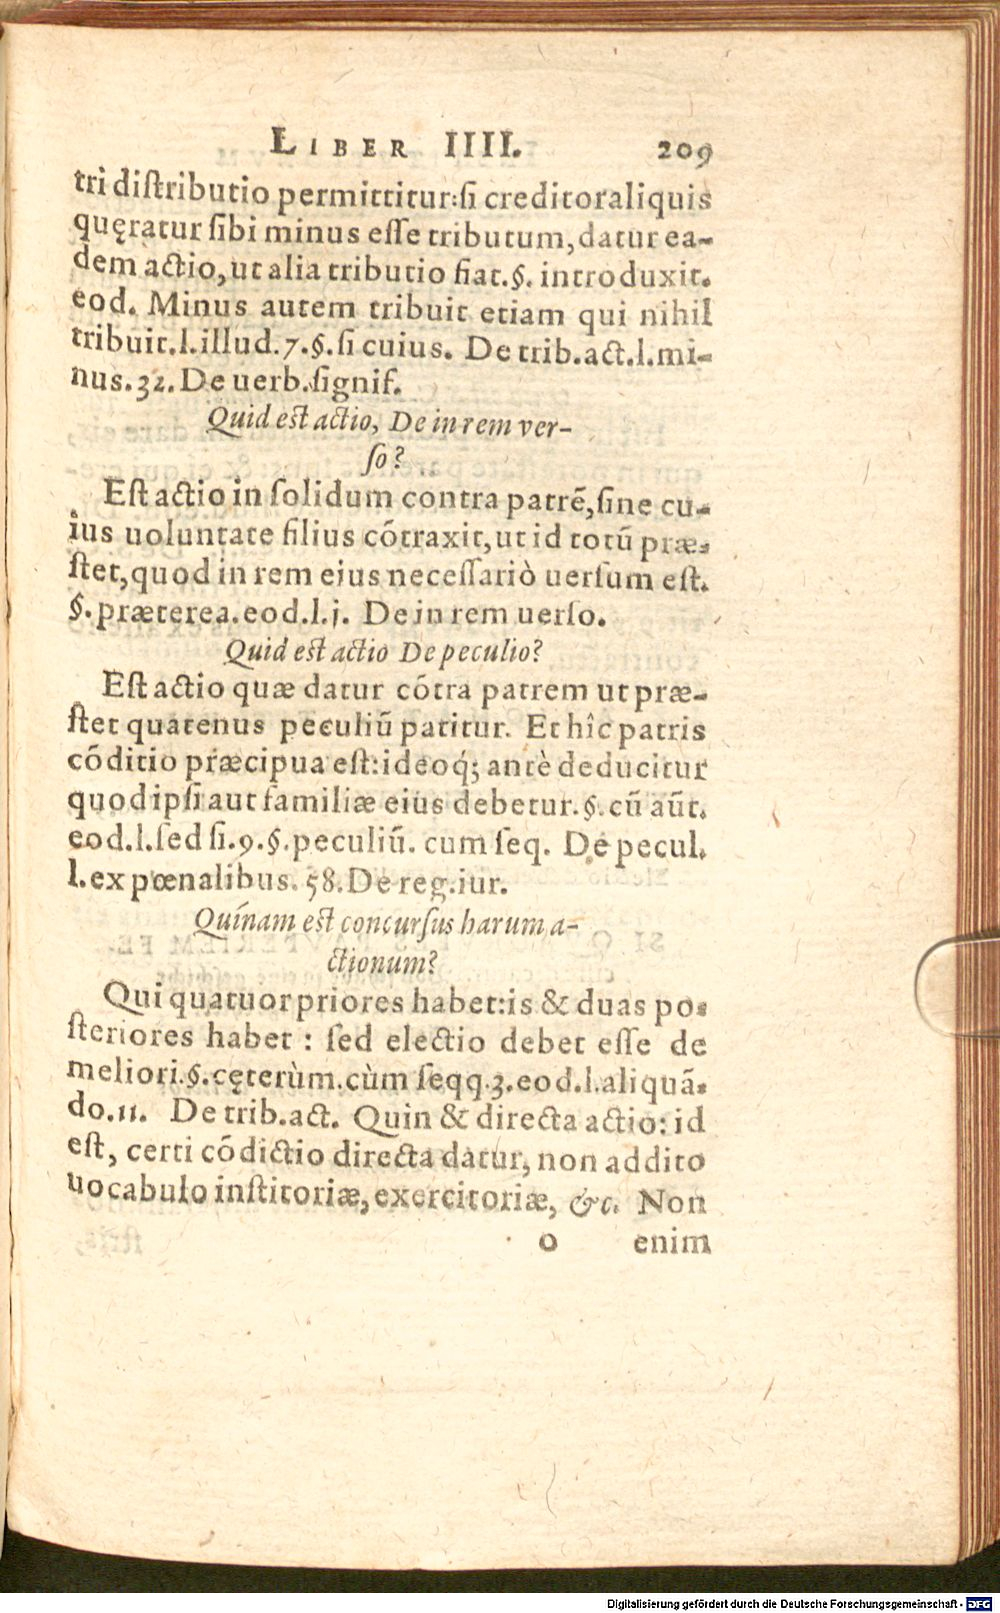 LIBER IIII. 209
tri distributio permittitur: si creditor aliquis
quęratur sibi minus esse tributum, datur ea-
dem actio, ut alia tributio fiat. §. introduxit.
eod. Minus autem tribuit etiam qui nihil
tribuit. l. illud. 7. §. si cuius. De trib. act. l. mi-
nus. 32. De uerb. signif.
Quid est actio, De in rem ver-
so?
Est actio in solidum contra patrẽ, sine cu-
ius uoluntate filius cõtraxit, ut id totũ præ-
stet, quod in rem eius necessariò uersum est.
§. præterea. eod. l. j. De in rem uerso.
Quid est actio De peculio?
Est actio quæ datur cõtra patrem ut præ-
stet quatenus peculiũ patitur. Et hîc patris
cõditio præcipua est: ideoq́; antè deducitur
quod ipsi aut familiæ eius debetur. §. cũ aũt.
eod. l. sed si. 9. §. peculiũ. cum seq. De pecul.
l. ex pœnalibus. 58. De reg. iur.
Quínam est concursus harum a-
ctionum?
Qui quatuor priores habet: is & duas po-
steriores habet : sed electio debet esse de
meliori. §. cęterùm. cùm seqq. 3. eod. l. aliquã-
do. 11. De trib. act. Quin & directa actio: id
est, certi cõdictio directa datur, non addito
uocabulo institoriæ, exercitoriæ, &c. Non
o enim
Digitalisierung gefördert durch die Deutsche Forschungsgemeinschaft - DFG